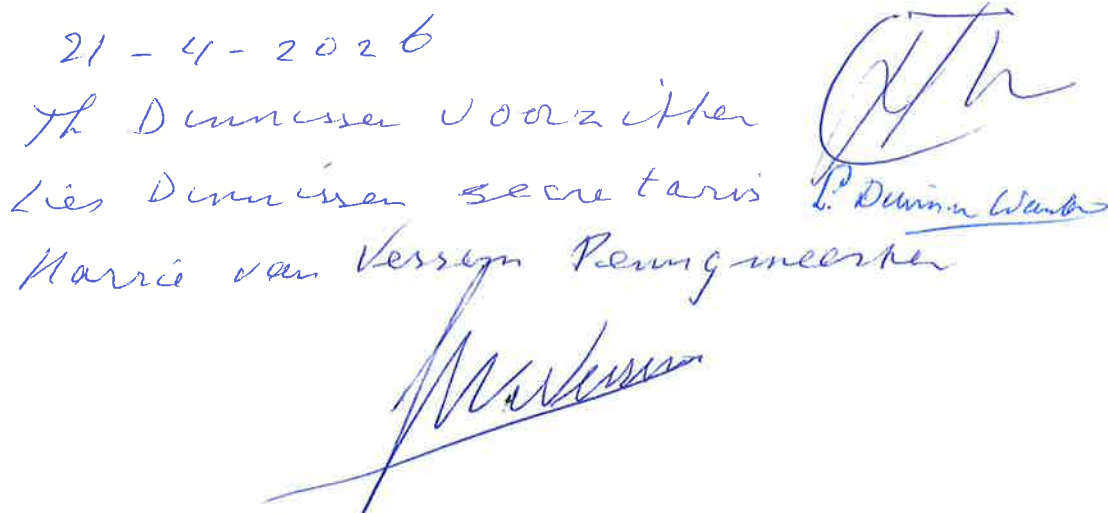 21-4-2026
Th Dinnissen voorzitter
Lies Dinnissen secretaris
Harrie van Vessem Penningmeester